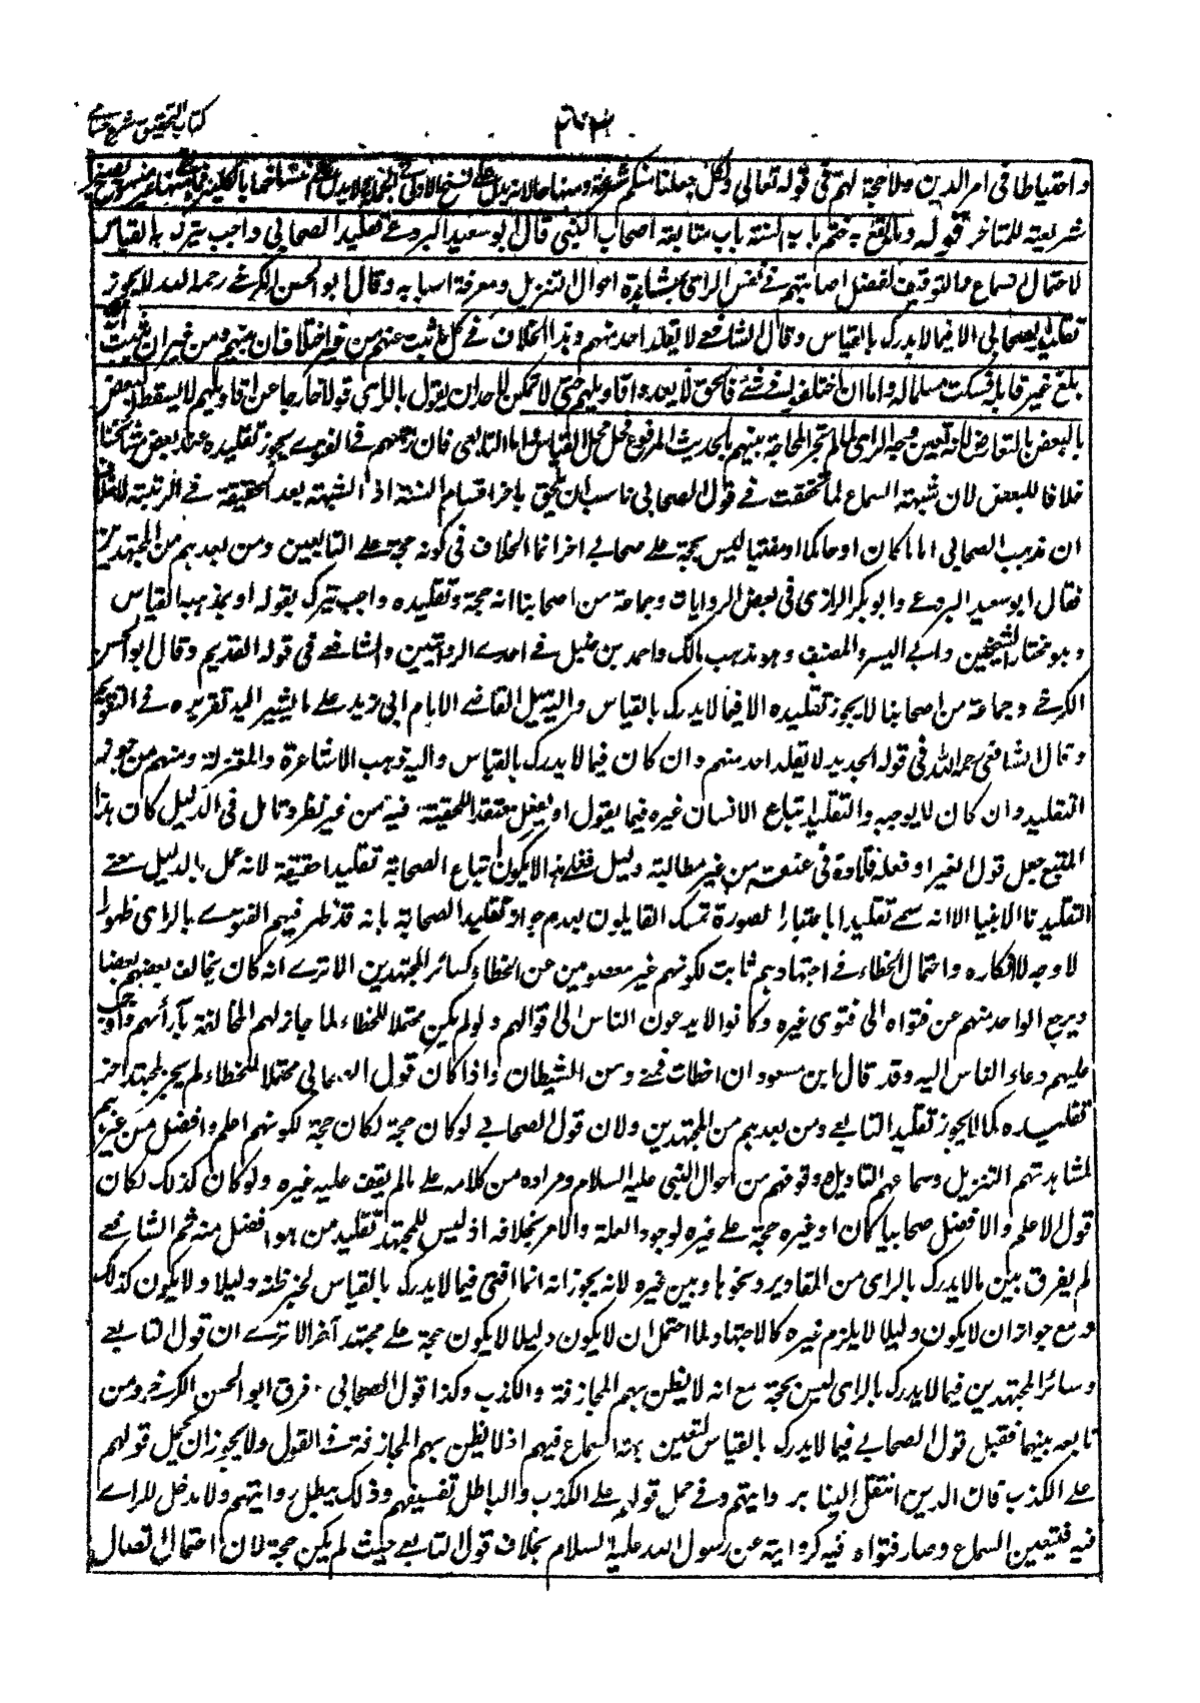 كتاب التحقيق شرح حسامي
واحتياطا فى امر الدين ولا حجة لهم فى قوله تعالى ولكل جعلنا منكم شرعة ومنهاجا لانه يدل على
شريعة للمتاخر قوله وما يقع به ختم باب السنة باب متابعة اصحاب النبى قال ابو سعيد البردعى تقليد الصحابى واجب يترك به القياس
لاحتمال السماع والتوقيف لفضل اصابتهم فى نفس الراى بمشاهدة احوال التنزيل ومعرفة اسبابه وقال ابو الحسن الكرخى رحمه الله لا يجوز
تقليد الصحابى الا فيما لا يدرك بالقياس وقال الشافعى لا يقلد احد منهم وهذا الخلاف فى كل ما ثبت عنهم من غير اختلاف بينهم ومن غير ان يثبت انه
بلغ غير قائله فسكت مسلما له واما ان اختلفوا فى شئ فالحق لا يعدو اقاويلهم حتى لا يمكن لاحد ان يقول بالراى قولا خارجا عن اقاويلهم لا يسقط البعض
بالبعض بالتعارض لانه تعين وجه الراى لما لم تجر المحاجة بينهم بالحديث المرفوع فحل محل القياس واما التابعى فان زاحمهم فى الفتوى يجوز تقليده عند بعض مشائخنا
خلافا للبعض لان شبهة السماع لما تحققت فى قول الصحابى ناسب ان يلحق باخر اقسام السنة اذ الشبهة بعد الحقيقة فى الرتبة لا خلاف
ان مذهب الصحابى اماما كان او حاكما او مفتيا ليس بحجة على صحابى اخر انما الخلاف فى كونه حجة على التابعين ومن بعدهم من المجتهدين
فقال ابو سعيد البردعى وابو بكر الرازى فى بعض الروايات وجماعة من اصحابنا انه حجة وتقليده واجب يترك بقوله او بمذهبه القياس
وهو مختار الشيخين وابى اليسر والمصنف وهو مذهب مالك واحمد بن حنبل فى احدى الروايتين والشافعى فى قوله القديم وقال ابو الحسن
الكرخى وجماعة من اصحابنا لا يجوز تقليده الا فيما لا يدرك بالقياس واليه يميل القاضى الامام ابى زيد على ما يشير اليه تقريره فى التقويم
وقال الشافعى رحمه الله فى قوله الجديد لا يقلد احد منهم وان كان فيما لا يدرك بالقياس واليه ذهب الاشاعرة والمعتزلة ومنهم من جوز
التقليد وان كان لا يوجبه والتقليد اتباع الانسان غيره فيما يقول او يفعل معتقدا للحقية فيه من غير نظر وتامل فى الدليل كان هذا
المتبع جعل قول الغير او فعله قلادة فى عنقه من غير مطالبة دليل فعلى هذا لا يكون اتباع الصحابة تقليدا حقيقة لانه عمل بالدليل
لا وجه لانكاره واحتمال الخطاء فى اجتهادهم ثابت لكونهم غير معصومين عن الخطاء كسائر المجتهدين الا ترى انه كان يخالف بعضهم بعضا
ويرجع الواحد منهم عن فتواه الى فتوى غيره وكانوا لا يدعون الناس الى اقوالهم ولو لم يكن محتملا للخطاء لما جاز لهم المخالفة بآرائهم ووجب
عليهم دعاء الناس اليه وقد قال ابن مسعود ان اخطات فمنى ومن الشيطان واذا كان قول الصحابى محتملا للخطاء لم يجز لمجتهد اخر
تقليده كما لا يجوز تقليد التابعى ومن بعدهم من المجتهدين ولان قول الصحابى لو كان حجة لكان حجة لكونهم اعلم وافضل من غيرهم
لمشاهدتهم التنزيل وسماعهم التاويل ووقوفهم من احوال النبى عليه السلام ومراده من كلامه على ما لم يقف عليه غيره ولو كان كذلك لكان
قول الاعلم والافضل صحابيا كان او غيره حجة على غيره لوجود العلة والامر بخلافه اذ ليس للمجتهد تقليد من هو افضل منه ثم الشافعى
لم يفرق بين ما لا يدرك بالراى من المقادير ونحوها وبين غيره لانه يجوز انه انما افتى فيما لا يدرك بالقياس لخبر ظنه دليلا ولا يكون كذلك
ومع جواز ان لا يكون دليلا لا يلزم غيره كالاجتهاد لما احتمل ان لا يكون دليلا لا يكون حجة على مجتهد آخر الا ترى ان قول التابعى
وسائر المجتهدين فيما لا يدرك بالراى ليس بحجة مع انه لا يظن بهم المجازفة والكذب وكذا قول الصحابى فرق ابو الحسن الكرخى ومن
تابعه بينهما فقبل قول الصحابى فيما لا يدرك بالقياس لتعين جهة السماع فيهم اذ لا يظن بهم المجازفة فى القول ولا يجوز ان يحمل قولهم
على الكذب فان الدين انتقل الينا بروايتهم وفى حمل قولهم على الكذب والباطل تفسيقهم وذلك يبطل روايتهم ولا مدخل للراى
فيه فتعين السماع وصار فتواه فيه كروايته عن رسول الله عليه السلام بخلاف قول التابعى حيث لم يكن حجة لان احتمال اتصال